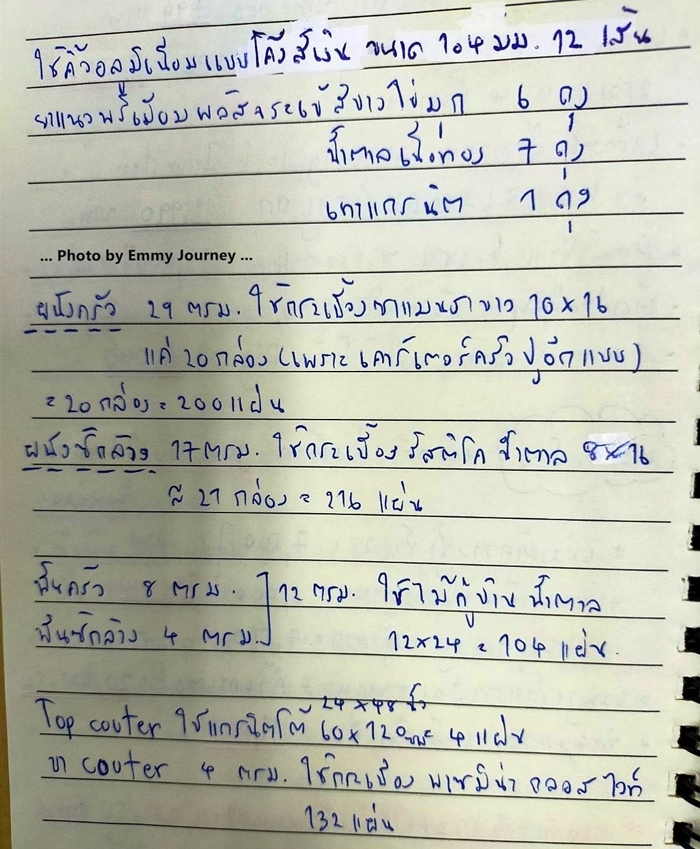 ใช้คิ้วอลูมิเนียมแบบโค้งสีเงิน ขนาด 104 มม. 12 เส้น
ยาแนวพรีเมี่ยมพลัสจระเข้ สีขาวไข่มุก 6 ถุง
น้ำตาลเนื้อทอง 7 ถุง
เทาแกรนิต 1 ถุง
... Photo by Emmy Journey ...
ผนังครัว 29 ตรม. ใช้กระเบื้องซาแมนธาขาว 10x16
แค่ 20 กล่อง (เพราะเคาร์เตอร์ครัวปูอีกแบบ)
= 20 กล่อง = 200 แผ่น
ผนังซักล้าง 17 ตรม. ใช้กระเบื้อง รัสติโค น้ำตาล 8x16
สี 27 กล่อง = 216 แผ่น
พื้นครัว 8 ตรม. 12 ตรม. ใช้ไม้กู่ข่าน น้ำตาล
พื้นซักล้าง 4 ตรม. 12x24 = 104 แผ่น
24x48 นิ้ว
Top couter ใช้แกรนิตโต้ 60x120 4 แผ่น
ขา couter 4 ตรม. ใช้กระเบื้อง พาซมิน่า กลอส ไวท์
132 แผ่น